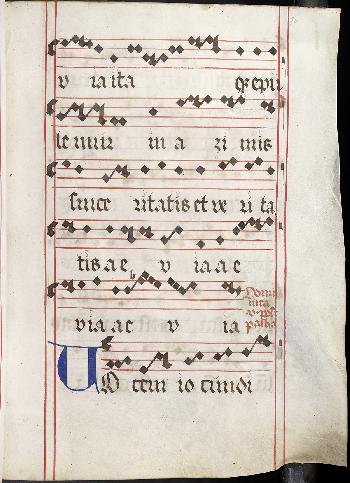 v ia ita q̄ epu
le mur in a zi mis
since ritatis et ve ri ta
tis a e v ia a e
via ae v ia
Domi
nica
v. post
pascha
Vo cem io cundi